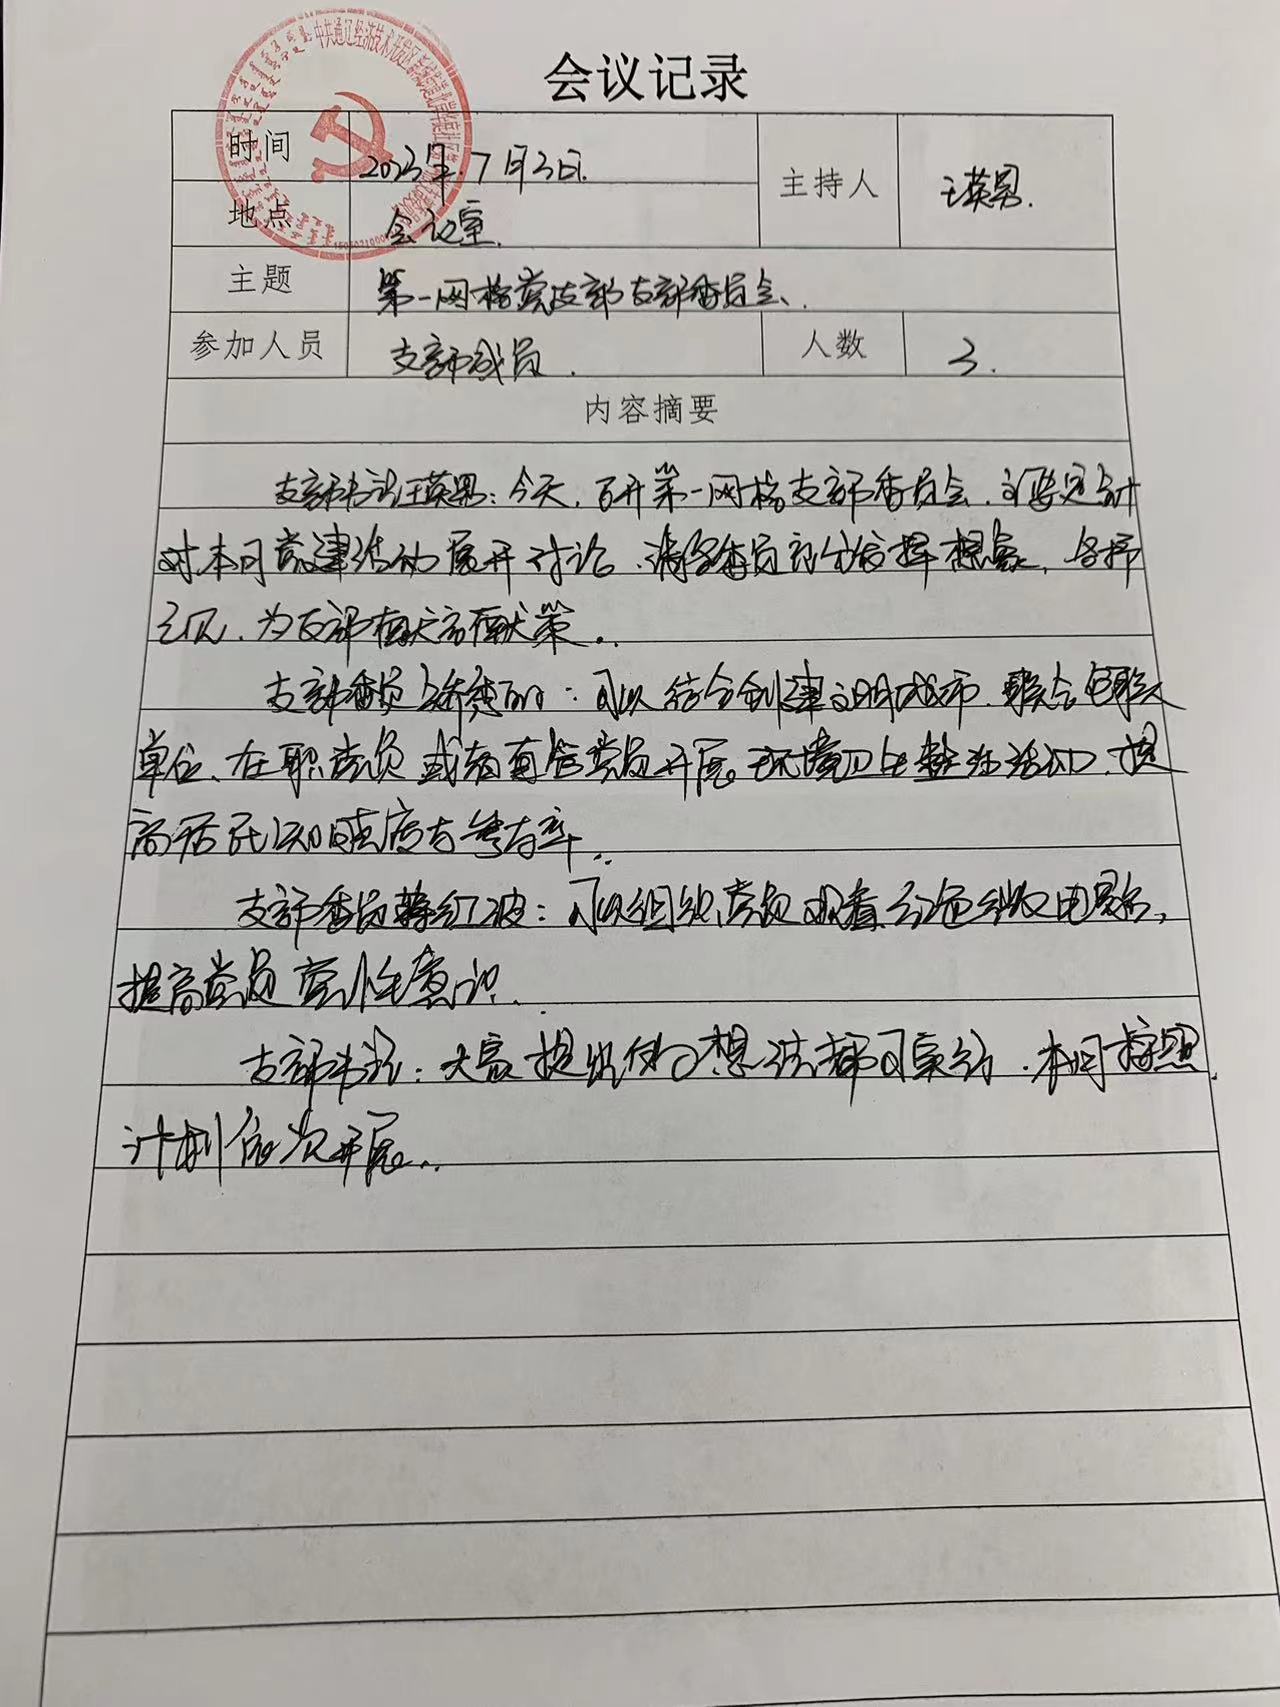 会议记录
时间 2023年7月3日. 主持人 王英男.
地点 会议室.
主题 第一网格党支部支部委员会.
参加人员 支部成员. 人数 3.
内容摘要
支部书记王英男：今天，召开第一网格支部委员会，主要是针
对本月党建活动展开讨论，请各委员充分发挥想象，各抒
己见，为支部献言献策。
支部委员：可以结合创建文明城市，联合包联
单位、在职党员或者直管党员开展环境卫生整治活动，提
高居民知晓度与参与率.
支部委员韩红波：可以组织党员观看红色电影，
提高党员党性意识.
支部书记：大家提出的想法都可实行，本月按照
计划依次开展.
中共通辽经济技术开发区